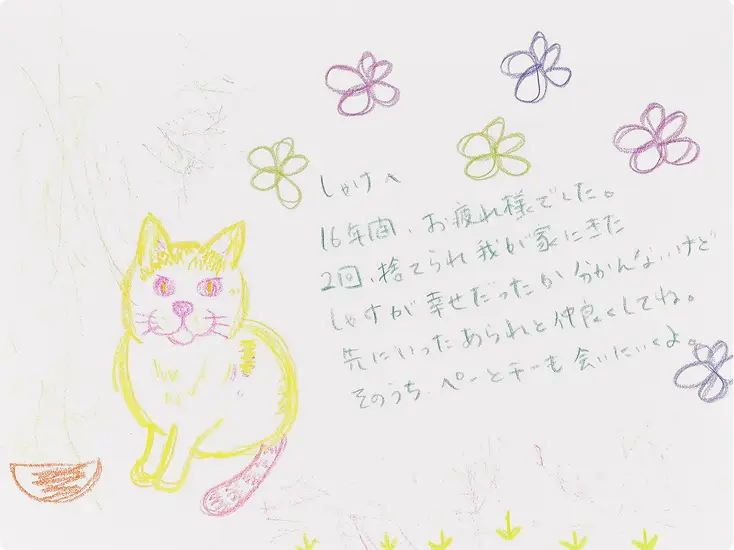 しゃけへ
16年間、お疲れ様でした。
2回、捨てられ我が家にきた
しゃけが幸せだったか分かんないけど
先にいったあられと仲良くしてね。
そのうち、ペーとチーも会いにいくよ。